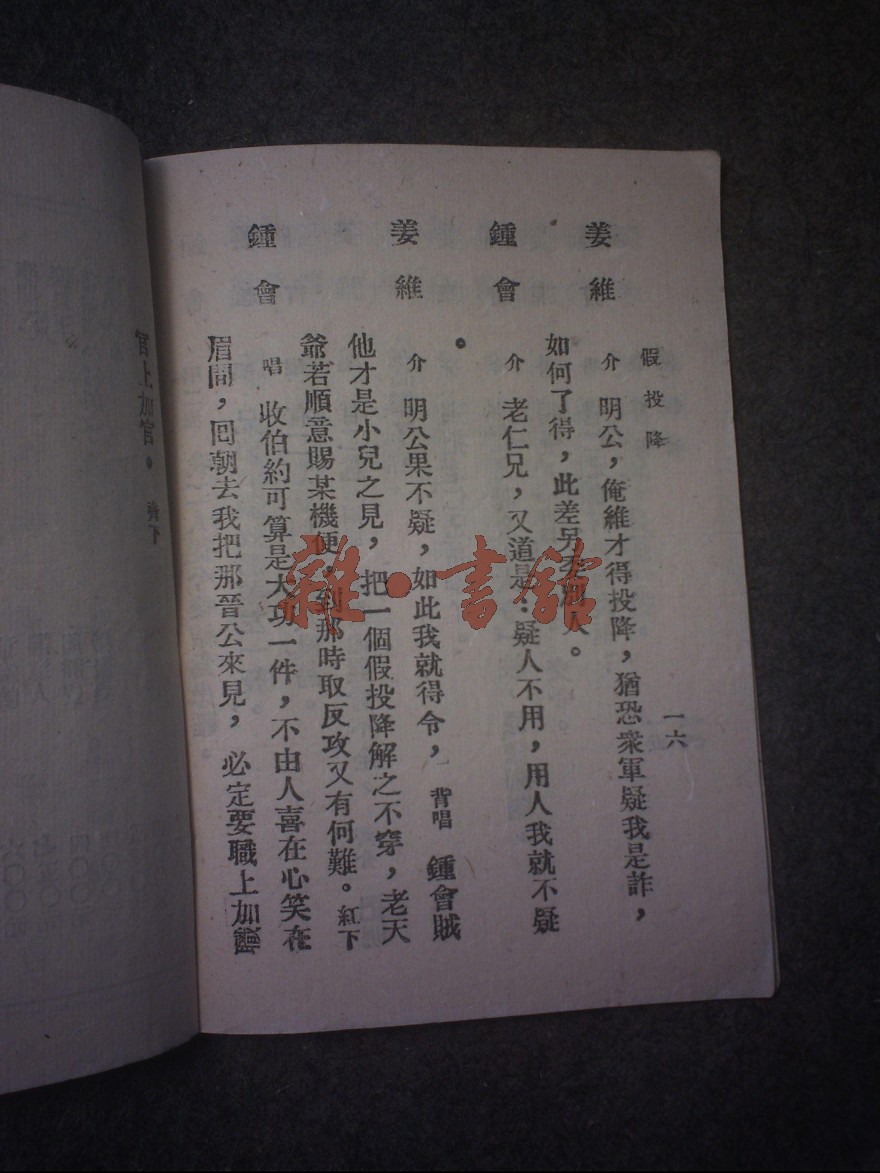 假投降
一六
姜維 介 明公，俺維才得投降，猶恐衆軍疑我是詐，
如何了得，此差另委別人。
鍾會 介 老仁兄，又道是：疑人不用，用人我就不疑
。
姜維 介 明公果不疑，如此我就得令， 背唱 鍾會賊
他才是小兒之見，把一個假投降解之不穿，老天
爺若順意賜某機便，到那時取反攻又有何難。紅下
鍾會 唱 收伯約可算是大功一件，不由人喜在心笑在
眉間，囘朝去我把那晉公來見，必定要職上加
官上加官。
雜·書館